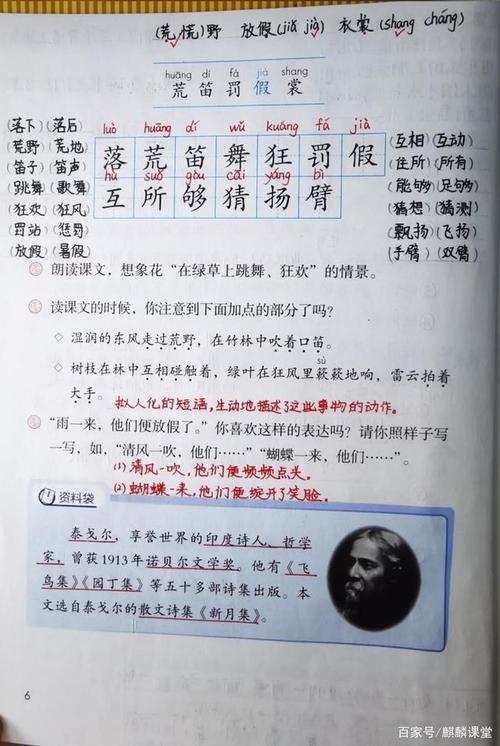 (荒 慌)野 放假(jiǎ jià) 衣裳(shang cháng)
huāng dí fá jià shang
荒 笛 罚 假 裳
(落下)(落后)
(荒野)(荒地)
(笛子)(笛声)
(跳舞)(歌舞)
(狂欢)(狂风)
(罚站)(惩罚)
(放假)(暑假)
luò huāng dí wǔ kuáng fá jià
落 荒 笛 舞 狂 罚 假
hù suǒ gòu cāi yáng bì
互 所 够 猜 扬 臂
(互相)(互动)
(住所)(所有)
(能够)(足够)
(猜想)(猜测)
(飘扬)(飞扬)
(手臂)(双臂)
朗读课文,想象花“在绿草上跳舞、狂欢”的情景。
读课文的时候,你注意到下面加点的部分了吗?
◇ 湿润的东风走过荒野,在竹林中吹着口笛。
sù
◇ 树枝在林中互相碰触着,绿叶在狂风里簌簌地响,雷云拍着
大手。
拟人化的短语,生动地描述了这些事物的动作。
“雨一来,他们便放假了。”你喜欢这样的表达吗?请你照样子写
一写,如,“清风一吹,他们……”“蝴蝶一来,他们……”。
(1)清风一吹,他们便频频点头。
(2)蝴蝶一来,他们便绽开了笑脸。
资料袋
泰戈尔,享誉世界的印度诗人、哲学
家,曾获1913年诺贝尔文学奖。他有《飞
鸟集》《园丁集》等五十多部诗集出版。本
文选自泰戈尔的散文诗集《新月集》。
6
百家号/麒麟课堂